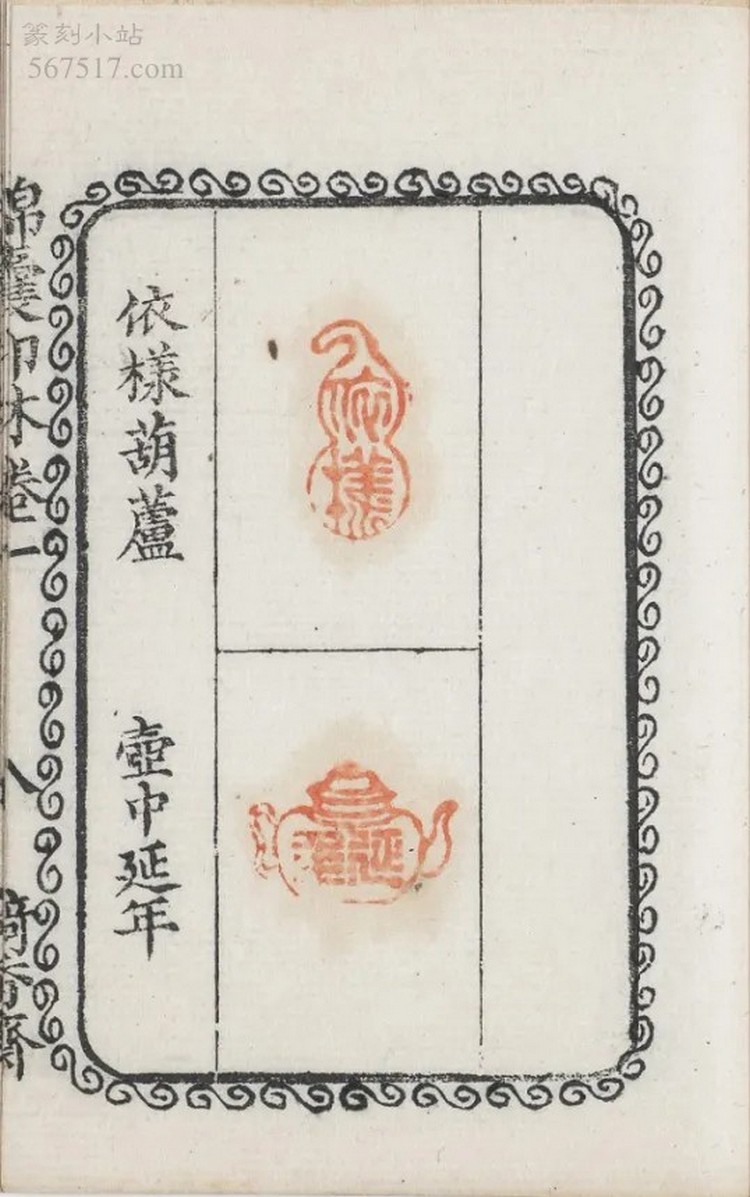 篆刻小站
567517.com
依樣葫蘆
壺中延年
依樣
延年
錦囊印林卷一
八